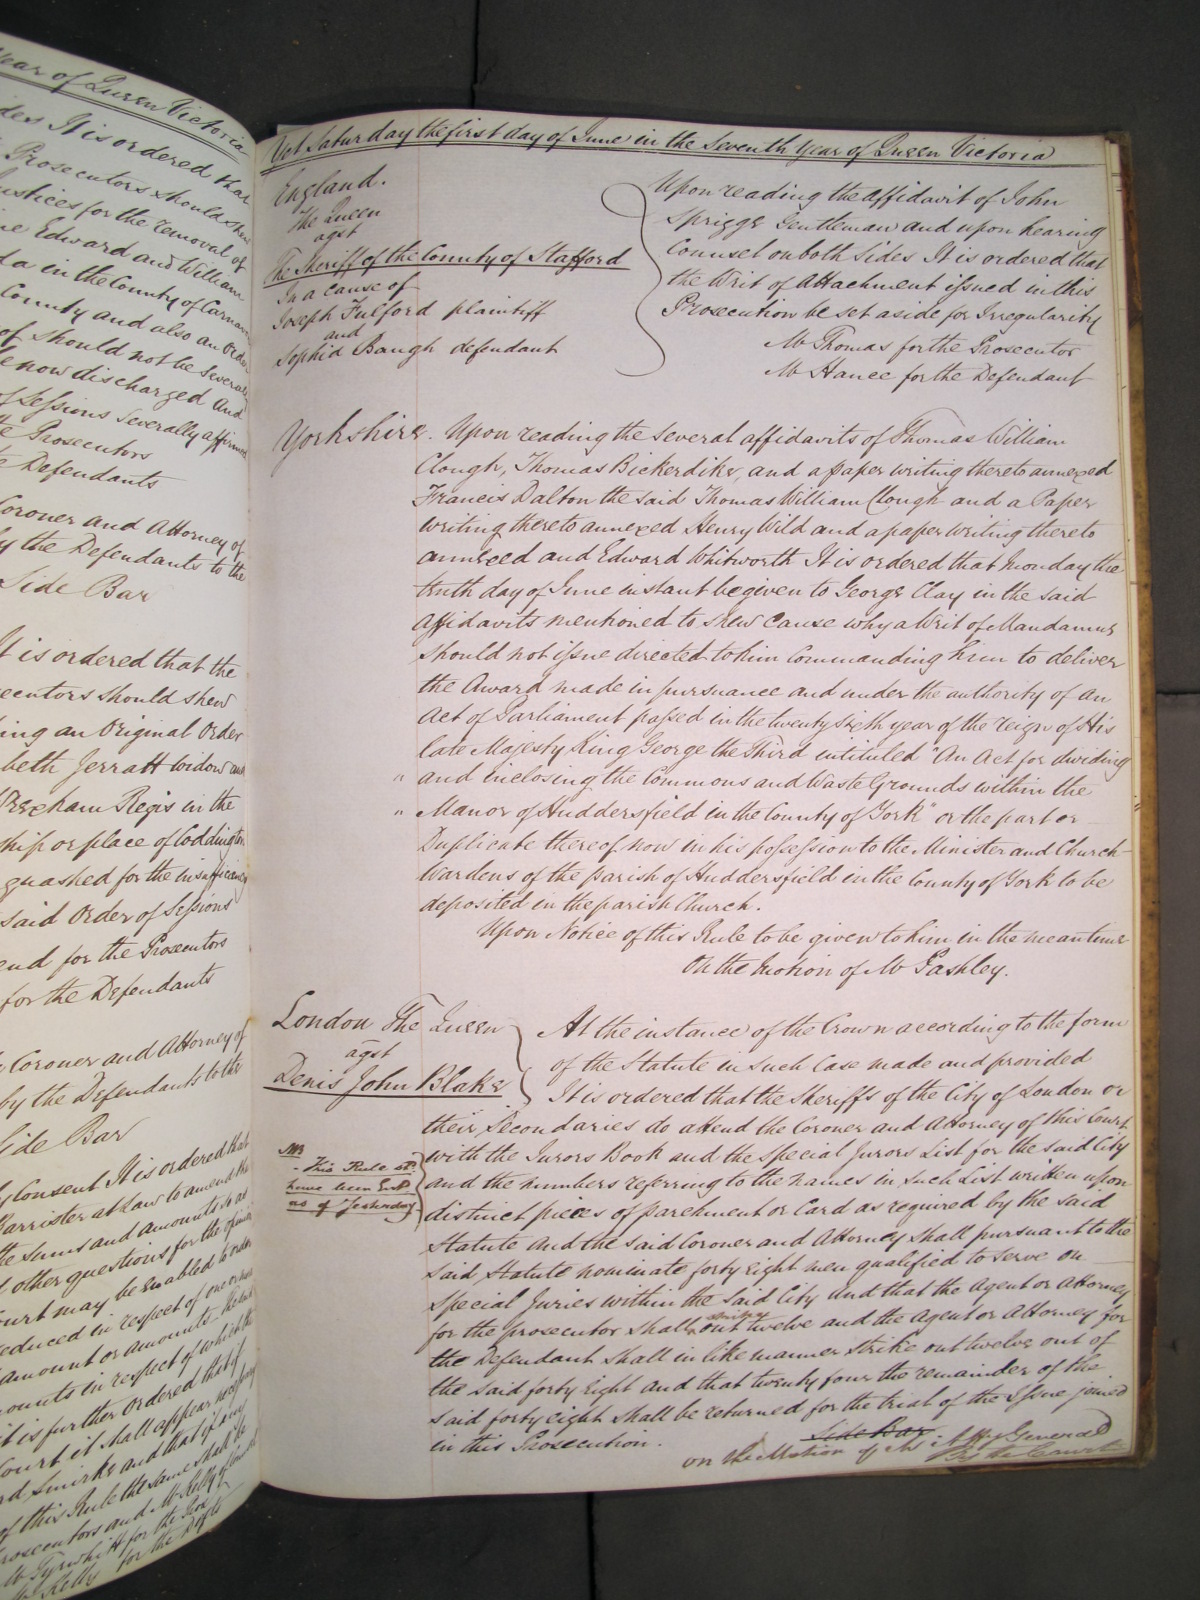 Year of Queen Victoria
It is ordered that
Prosecutors should shew
Justices for the removal of
Edward and William
in the County of Carnarvon
County and also an Order
of should not be severally
now discharged And
of Sessions severally affirmed
Prosecutors
Defendants
Coroner and Attorney of
by the Defendants to the
Side Bar
It is ordered that the
Prosecutors should shew
an Original Order
Jerratt Widow and
Regis in the
or place of Coddington
quashed for the insufficiency
said Order of Sessions
for the Prosecutors
for the Defendants
Coroner and Attorney of
by the Defendants to the
Side Bar
Consent It is ordered that
Barrister at Law to amend the
the sums and amounts so as
other questions for the opinion
Court may be enabled to order
reduced in respect of one or more
amount or amounts
amounts in respect of which the
it is further Ordered that if
Court it shall appear
and that if any
of this Rule the same shall be
Prosecutors and Mr Kelly of Counsel
Mr Tyrwhitt for the Pros
Mr Kelly for the Defts
Yet Saturday the first day of June in the Seventh Year of Queen Victoria
England.
The Queen
agst
The Sheriff of the County of Stafford
In a Cause of
Joseph Fulford plaintiff
and
Sophia Baugh defendant
Upon reading the Affidavit of John
Spriggs Gentleman and upon hearing
Counsel on both sides It is ordered that
the Writ of Attachment issued in this
Prosecution be set aside for Irregularity
Mr Thomas for the Prosecutor
Mr Hance for the Defendant
Yorkshire. Upon reading the several affidavits of Thomas William
Clough, Thomas Bickerdike, and a paper writing thereto annexed
Francis Dalton the said Thomas William Clough and a Paper
writing thereto annexed Henry Wild and a paper writing thereto
annexed and Edward Whitworth It is ordered that Monday the
tenth day of June instant be given to George Clay in the said
Affidavits mentioned to shew Cause why a Writ of Mandamus
should not issue directed to him Commanding him to deliver
the Award made in pursuance and under the authority of an
Act of Parliament passed in the twenty sixth year of the reign of His
late Majesty King George the Third intituled "An Act for dividing
" and inclosing the Commons and Waste Grounds within the
" Manor of Huddersfield in the County of York" or the part or
Duplicate thereof now in his possession to the Minister and Church
Wardens of the parish of Huddersfield in the County of York to be
deposited in the parish Church.
Upon Notice of this Rule to be given to him in the meantime
On the Motion of Mr Pashley.
London The Queen
agst
Denis John Blake
At the instance of the Crown according to the form
of the Statute in such Case made and provided
It is ordered that the Sheriffs of the City of London or
their Secondaries do attend the Coroner and Attorney of this Court
with the Jurors Book and the Special Jurors List for the said City
and the numbers referring to the names in such List written upon
distinct pieces of parchment or Card as required by the said
Statute And the said Coroner and Attorney shall pursuant to the
said Statute nominate forty eight men qualified to serve on
Special Juries within the said City And that the Agent or Attorney
for the prosecutor shall strike out twelve and the Agent or Attorney for
the Defendant shall in like manner strike out twelve out of
the said forty eight And that twenty four the remainder of the
said forty eight shall be returned for the trial of the Issue joined
in this Prosecution.
Side Bar
on the Motion of Mr Atty General
By the Court
MB
This Rule sd.
have been Entd.
as of Yesterday